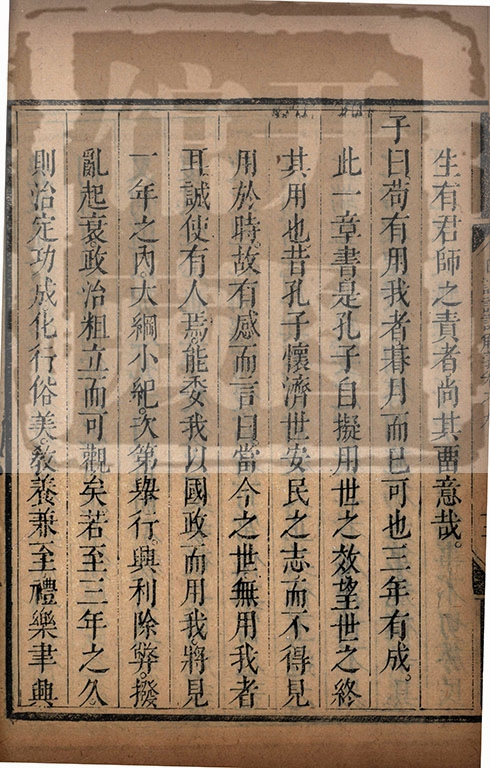 生有君師之責者尚其畱意哉。
子曰苟有用我者朞月而已可也三年有成。
此一章書是孔子自擬用世之效望世之終
其用也昔孔子懷濟世安民之志而不得見
用於時。故有感而言曰。當今之世無用我者
耳。誠使有人焉。能委我以國政而用我。將見
一年之內。大綱小紀。次第舉行。興利除弊。撥
亂起衰。政治粗立而可觀矣若至三年之久
則治定功成化行俗美。敎養兼至禮樂聿興